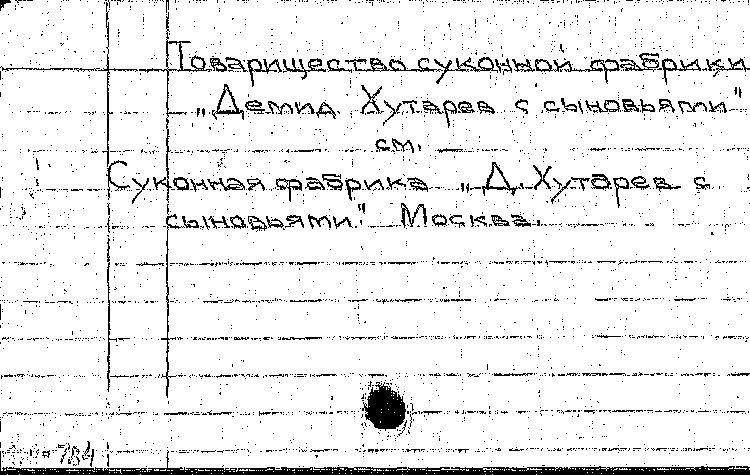 Товарищество суконной фабрики
„Демид Хутарев с сыновьями"
см.
Суконная фабрика „Д. Хутарев с
сыновьями." Москва.